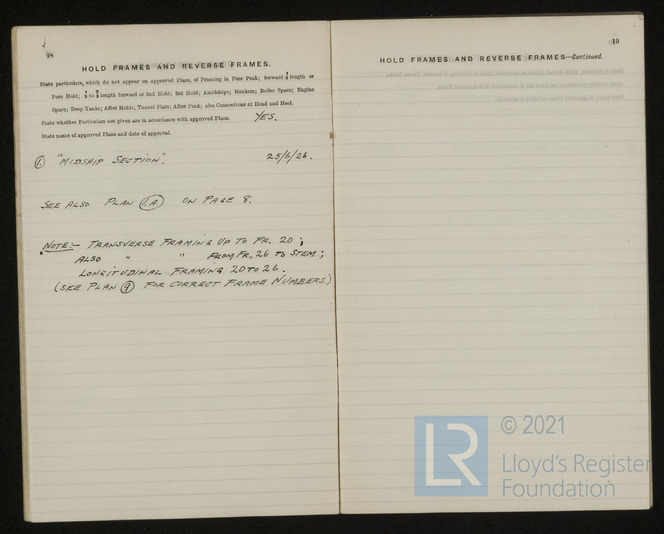 18
HOLD FRAMES AND REVERSE FRAMES.
State particulars, which do not appear on approved Plans, of Framing in Fore Peak; forward 1/5 length or
Fore Hold; 1/5 to 2/5 length forward or 2nd Hold; 3rd Hold; Amidships; Bunkers; Boiler Space; Engine
Space; Deep Tanks; After Holds; Tunnel Flats; After Peak; also Connections at Head and Heel.
State whether Particulars not given are in accordance with approved Plans. YES.
State name of approved Plans and date of approval.
① "MIDSHIP SECTION". 25/6/26.
SEE ALSO PLAN (1.A.) ON PAGE 8.
NOTE:- TRANSVERSE FRAMING UP TO FR. 20;
ALSO " " FROM FR. 26 TO STEM;
LONGITUDINAL FRAMING 20 TO 26.
(SEE PLAN ⑨ FOR CORRECT FRAME NUMBERS.)
19
HOLD FRAMES AND REVERSE FRAMES—Continued.
LR
© 2021
Lloyd's Register
Foundation